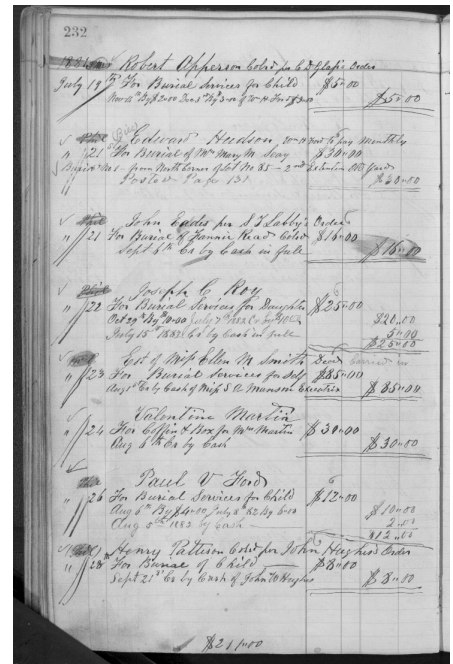 232
1881 Robert Apperson Cold per C D Glass Order
July 19th For Burial Services for Child $5.00
$5.00
Edward Hudson to pay Monthly
" 21 For Burial of Mrs Mary M. $30.00
from North Corner of Lot No 85 - 2nd Extention Old Yard
Posted Page 131 $30.00
John per S T Order
" 21 For Burial of Fannie Read Cold $16.00
Sept 8th Cr by Cash in full $16.00
Joseph C Roy
" 22 For Burial Services for Daughter $25.00
Oct 29th By $10.00 July $20.00
July 15th 1882 Cr by Cash in full 5.00
$25.00
Est of Miss Ellen M Smith Decd
" 23 For Burial Services for Self $85.00
Aug 1st Cr by Cash of Miss S A Munson Executrix $85.00
Valentine Martin
" 24 For Coffin & Box for Mrs Martin $30.00
Aug 6th Cr by Cash $30.00
Paul V Ford
" 26 For Burial Services for Child $12.00
Aug 6th By $4.00 July 8th 82 By 6.00 $10.00
Aug 5th 1882 by Cash 2.00
$12.00
Henry Patterson Cold per John Hughes Order
" 28th For Burial of Child $8.00
Sept 21st Cr by Cash of John W Hughes $8.00
$211.00